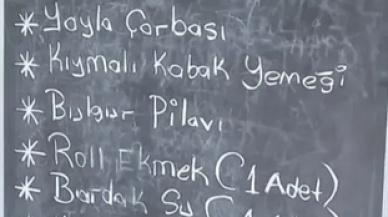 * Yayla Çorbası
* Kıymalı Kabak Yemeği
* Bulgur Pilavı
* Roll Ekmek (1 Adet)
* Bardak Su (1